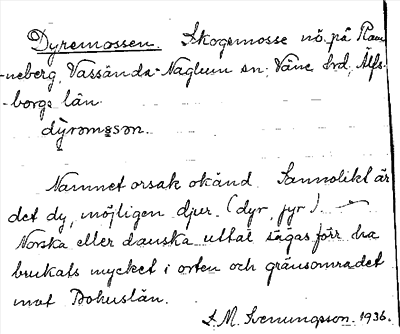 Dyremossen. Skogsmosse nö. på Ran-
-neberg, Vassända-Naglum sn, Väne hd, Älfs-
-borgs län.
dýrəmo̥sən.
Namnet orsak okänd. Sannolikt är
det dy, möjligen djur. (dyr, jyr). —
Norska eller danska uttal sägas förr ha
brukats mycket i orten och gränsområdet
mot Bohuslän.
L. M. Svenungsson. 1936.